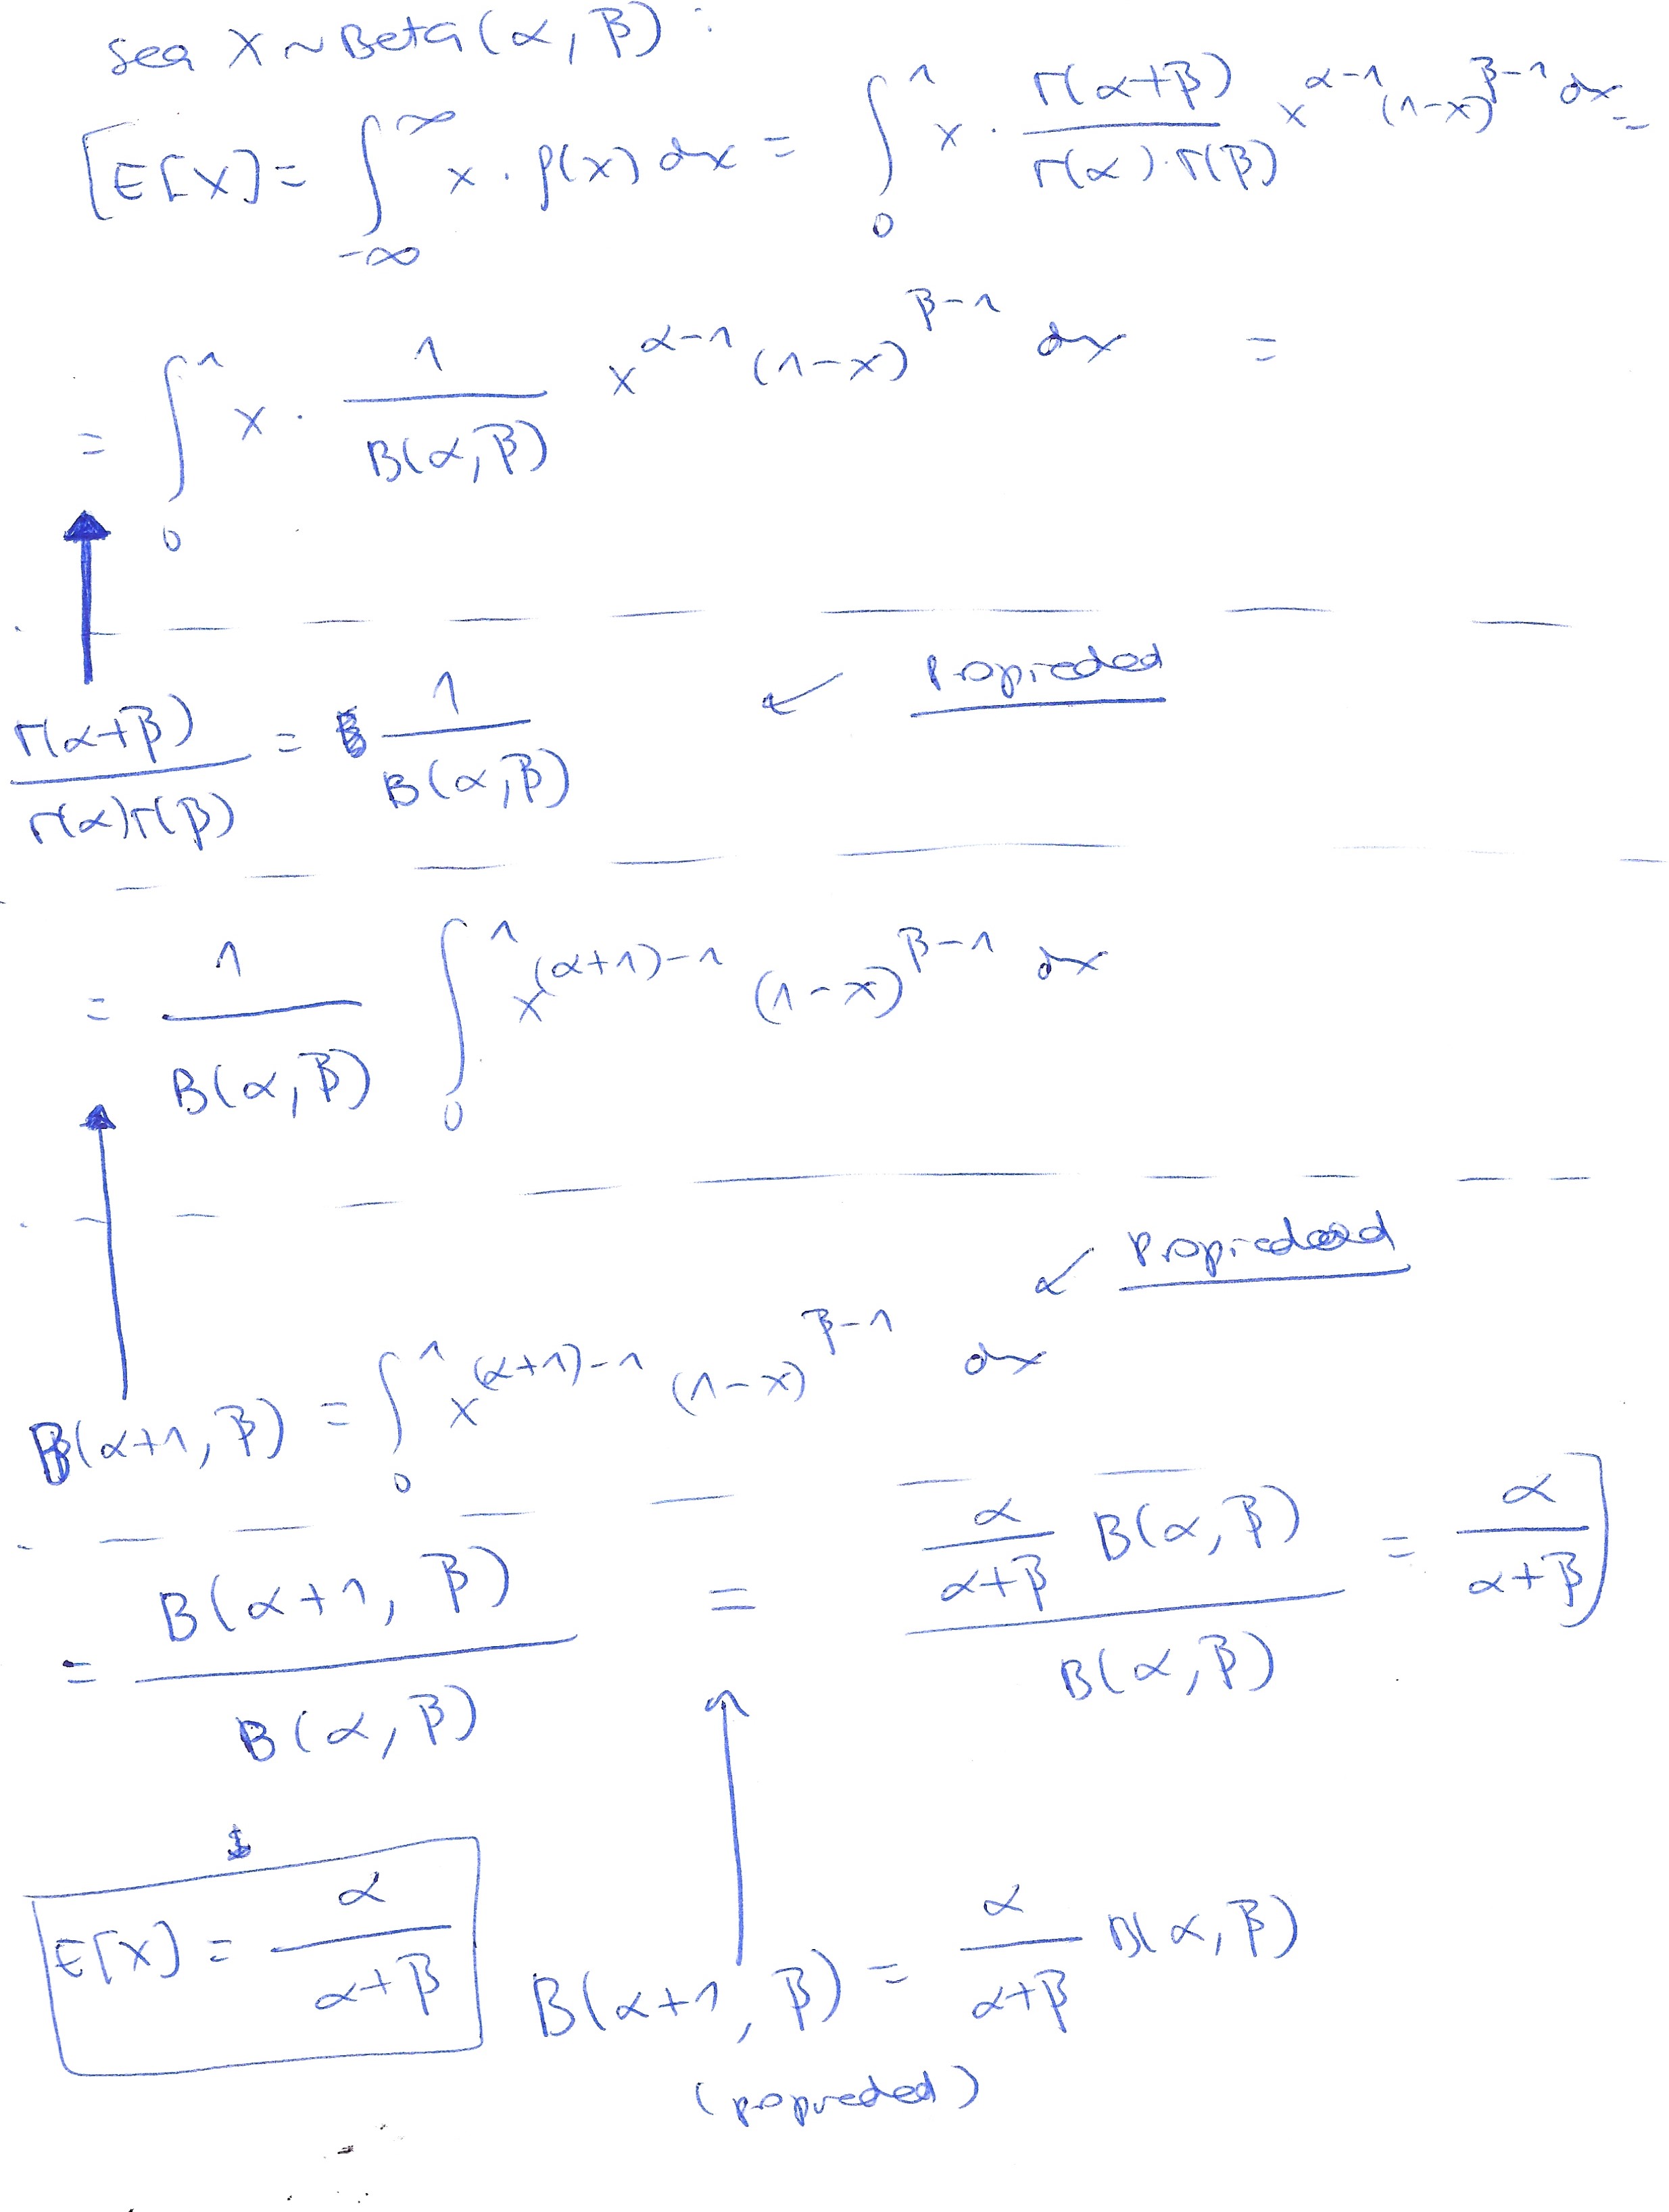 Sea X ~ Beta(α, β):
[E[X] = ∫_{-∞}^{∞} x · f(x) dx = ∫_0^1 x · Γ(α+β)/(Γ(α)·Γ(β)) x^{α-1} (1-x)^{β-1} dx =
= ∫_0^1 x · 1/B(α,β) x^{α-1} (1-x)^{β-1} dx =
Γ(α+β)/(Γ(α)Γ(β)) = 1/B(α,β) ↙ Propiedad
= 1/B(α,β) ∫_0^1 x^{(α+1)-1} (1-x)^{β-1} dx
↙ Propiedad
B(α+1, β) = ∫_0^1 x^{(α+1)-1} (1-x)^{β-1} dx
= B(α+1, β)/B(α, β) = (α/(α+β) B(α,β))/B(α,β) = α/(α+β)]
E[X] = α/(α+β)
B(α+1, β) = α/(α+β) B(α,β)
(propiedad)